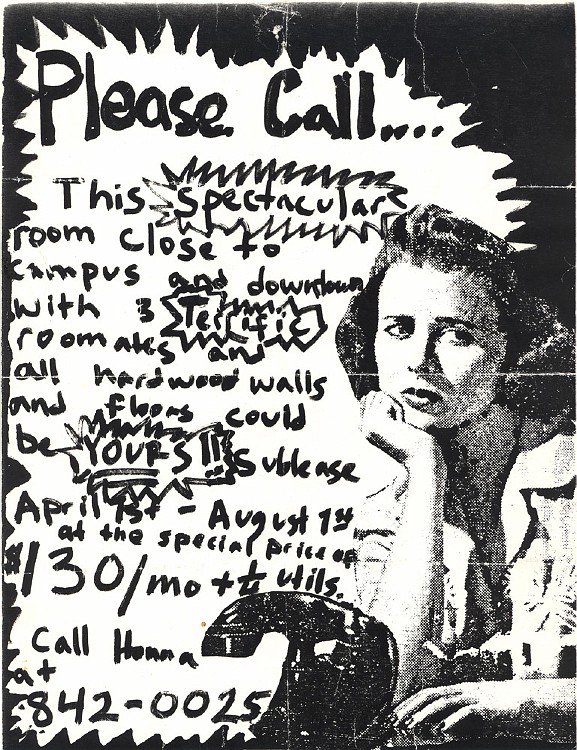 Please Call....
This Spectacular
room close to
campus and downtown
with 3 Terrific
roomates and
all hardwood walls
and floors could
be YOURS!! Sublease
April 1st - August 1st
at the special price of
$130/mo + utils.
Call Hanna
at
842-0025